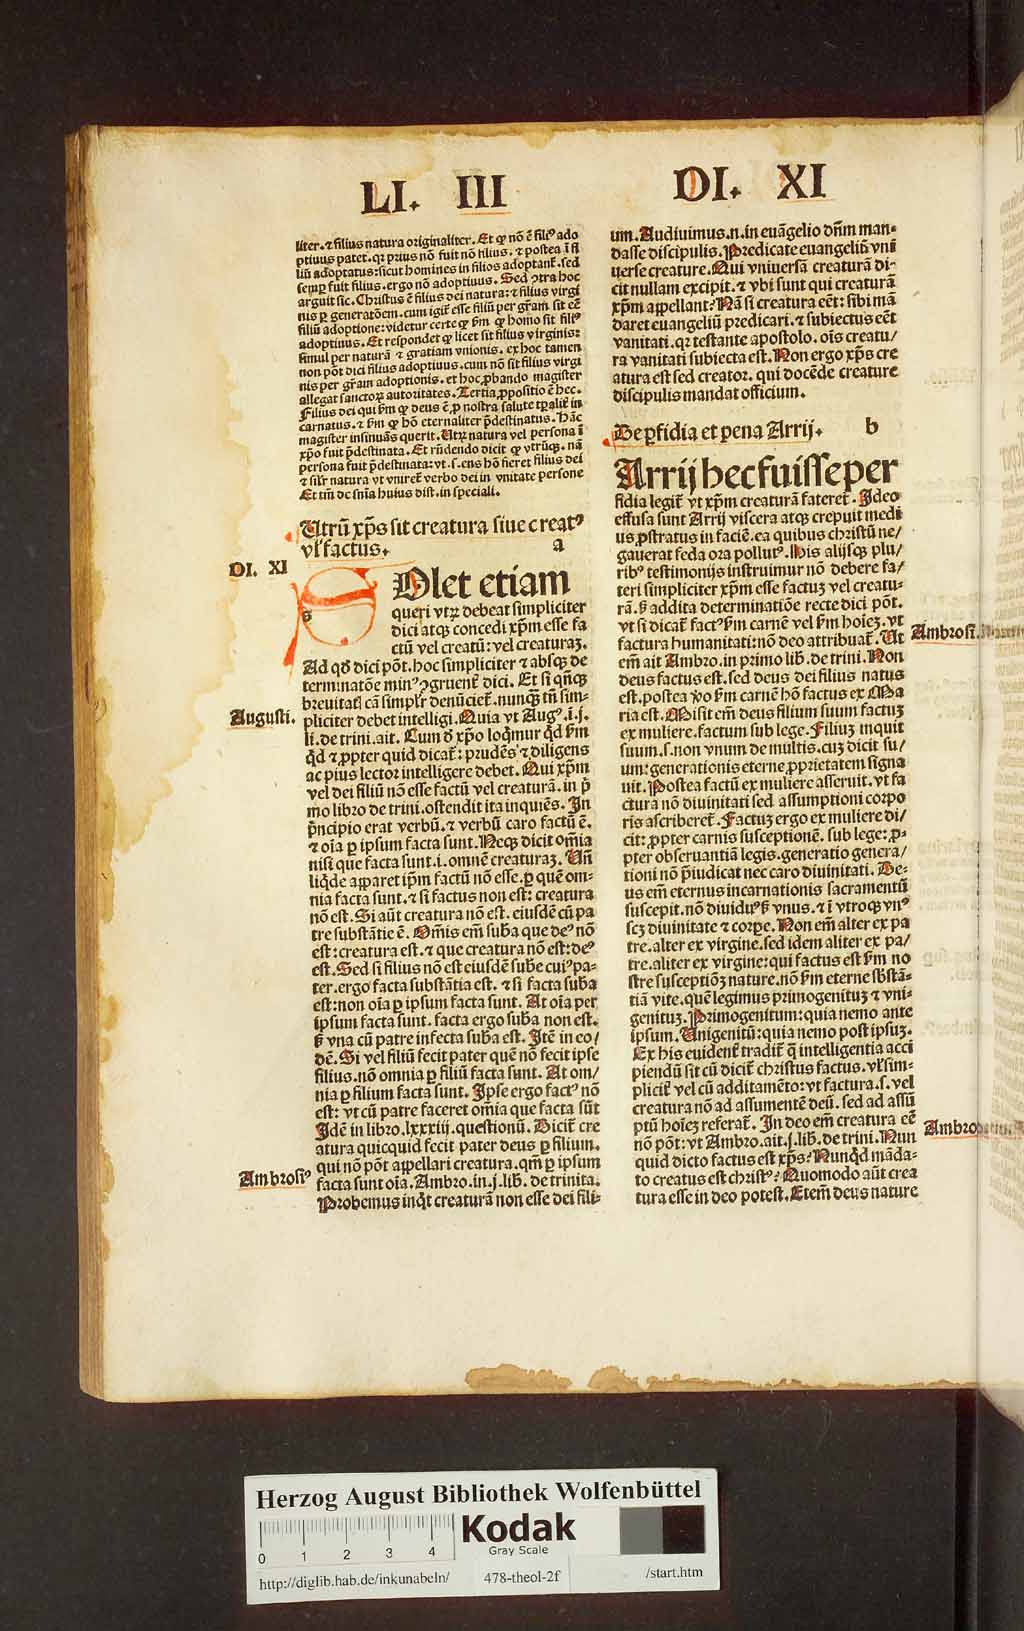 LI. III
DI. XI
liter. ⁊ filius natura originaliter. Et ꝙ nō ē filiꝰ ado
ptiuus patet. qꝛ prius nō fuit nō filius. ⁊ postea ī fi
liū adoptatus: sicut homines in filios adoptant̄. sed
semꝑ fuit filius. ergo nō adoptiuus. Sed ↄtra hoc
arguit sic. Christus ē filius dei natura: ⁊ filius virgi
nis ꝑ generatōem. cum igit̄ esse filiū per grām sit eē
filiū adoptione: videtur certe ꝙ ẜm ꝙ homo sit filiꝰ
adoptiuus. Et respondet ꝙ licet sit filius virginis:
simul per naturā ⁊ gratiam vnionis. ex hoc tamen
non pōt dici filius adoptiuus. cum nō sit filius virgi
nis per grām adoptionis. et hoc ꝓbando magister
allegat sanctoꝝ autoritates. Tertia ꝓpositio ē hec.
Filius dei qui ẜm ꝙ deus ē ꝓ nostra salute tꝑalit̄ in
carnatus. ⁊ ẜm ꝙ hō eternaliter p̄destinatus. Hāc
magister insinuās querit. Utꝝ natura vel persona ī
xp̄o fuit p̄destinata. Et rn̄dendo dicit ꝙ vtrūqꝫ. nā
persona fuit p̄destinata: vt .s. ens hō fieret filius dei
⁊ sil̄r natura vt vniret̄ verbo dei in vnitate persone
Et tm̄ de sn̄ia huius dist. in speciali.
Utrū xp̄s sit creatura siue creatꝰ
vl̓ factus. a
DI. XI
s
Olet etiam
queri vtꝝ debeat simpliciter
dici atqꝫ concedi xp̄m esse fa
ctū vel creatū: vel creaturaꝫ.
Ad qd̄ dici pōt. hoc simpliciter ⁊ absqꝫ de
terminatōe minꝰ ↄgruent̄ dici. Et si qn̄qꝫ
breuitatꝭ cā simpl̓r denūciet̄. nunqꝫ̄ tn̄ sim-
Augusti.
pliciter debet intelligi. Quia vt Augꝰ. ī .j.
li. de trini. ait. Cum d̓ xp̄o loq̄mur qd̄ ẜm
qd̄ ⁊ ꝓpter quid dicat̄: prudēs ⁊ diligens
ac pius lector intelligere debet. Qui xp̄m
vel dei filiū nō esse factū vel creaturā. in p̄
mo libro de trini. ostendit ita inquiēs. In
pͥncipio erat verbū. ⁊ verbū caro factū ē.
⁊ oīa ꝑ ipsum facta sunt. Necqꝫ dicit om̄ia
nisi que facta sunt .i. omnē creaturaꝫ. Un̄
liq̄de apparet ip̄m factū nō esse. ꝑ quē om-
nia facta sunt. ⁊ si factus non est: creatura
nō est. Si aūt creatura nō est. eiusdē cū pa
tre substātie ē. Om̄is em̄ suba que deꝰ nō
est: creatura est. ⁊ que creatura nō est: deꝰ
est. Sed si filius nō est eiusdē sube cuiꝰ pa-
ter. ergo facta substātia est. ⁊ si facta suba
est: non oīa ꝑ ipsum facta sunt. At oīa per
ipsum facta sunt. facta ergo suba non est.
ꝫ vna cū patre infecta suba est. Itē in eo/
dē. Si vel filiū fecit pater quē nō fecit ipse
filius. nō omnia ꝑ filiū facta sunt. At om/
nia ꝑ filium facta sunt. Ipse ergo factꝰ nō
est: vt cū patre faceret om̄ia que facta sūt
Idē in libro. lxxxiij. questionū. Dicit̄ cre
atura quicquid fecit pater deus ꝑ filium.
qui nō pōt appellari creatura. qm̄ ꝑ ipsum
Ambrosiꝰ
facta sunt oīa. Ambro. in .j. lib. de trinita.
Probemus inqͥt creaturā non esse dei fili-
um. Audiuimus .n. in euāgelio dn̄m man-
dasse discipulis. Predicate euangeliū vni
uerse creature. Qui vniuersā creaturā di-
cit nullam excipit. ⁊ vbi sunt qui creaturā
xp̄m appellant? Nā si creatura eēt: sibi mā
daret euangeliū predicari. ⁊ subiectus eēt
vanitati. qꝛ testante apostolo. oīs creatu/
ra vanitati subiecta est. Non ergo xp̄s cre
atura est sed creator. qui docēde creature
discipulis mandat officium.
De ꝑfidia et pena Arrij. b
Arrij hec fuisse per
fidia legit̄ vt xp̄m creaturā fateret̄. Ideo
effusa sunt Arrij viscera atqꝫ crepuit medi
us ꝓstratus in faciē. ea quibus christū ne/
gauerat feda ora pollutꝰ. His alijsqꝫ plu/
ribꝰ testimonijs instruimur nō debere fa/
teri simpliciter xp̄m esse factuꝫ vel creatu-
rā. ꝫ addita determinatiōe recte dici pōt.
vt si dicat̄ factꝰ ẜm carnē vel ẜm hoieꝫ. vt
Ambrosi.
factura humanitati: nō deo attribuat̄. Ut
em̄ ait Ambro. in primo lib. de trini. Non
deus factus est. sed deus dei filius natus
est. postea ꝟo ẜm carnē hō factus ex Ma
ria est. Misit em̄ deus filium suum factuꝫ
ex muliere. factum sub lege. Filiuꝫ inquit
suum. s. non vnum de multis. cuꝫ dicit su/
um: generationis eterne ꝓprietatem signa
uit. Postea factū ex muliere asseruit. vt fa
ctura nō diuinitati sed assumptioni corpo
ris ascriberet̄. Factuꝫ ergo ex muliere di/
cit: ꝓpter carnis susceptionē. sub lege: ꝓ-
pter obseruantiā legis. generatio genera/
tioni nō p̄iudicat nec caro diuinitati. De-
us em̄ eternus incarnationis sacramentū
suscepit. nō diuidꝰ ꝫ vnus. ⁊ ī vtroqꝫ vnꝰ
scꝫ diuinitate ⁊ corpe. Non em̄ alter ex pa
tre. alter ex virgine. sed idem aliter ex pa/
tre. aliter ex virgine: qui factus est ẜm no
stre susceptiōꝫ nature. nō ẜm eterne sbstā-
tiā vite. quē legimus primogenituꝫ ⁊ vni-
genituꝫ. Primogenitum: quia nemo ante
ipsum. Unigenitū: quia nemo post ipsuꝫ.
Ex his euident̄ tradit̄ q̄ intelligentia acci
piendū sit cū dicit̄ christus factus. vl̓ sim-
plicit̄ vel cū additamēto: vt factura .s. vel
creatura nō ad assumentē deū. sed ad assū
ptū hoieꝫ referat̄. In deo em̄ creatura eē
Ambro
nō pōt: vt Ambro. ait .j. lib. de trini. Nun
quid dicto factus est xp̄s? Nunqͥd māda-
to creatus est christꝰ? Quomodo aūt crea
tura esse in deo potest. Etem̄ deus nature
Herzog August Bibliothek Wolfenbüttel
0 1 2 3 4
Kodak
Gray Scale
http://diglib.hab.de/inkunabeln/ 478-theol-2f /start.htm